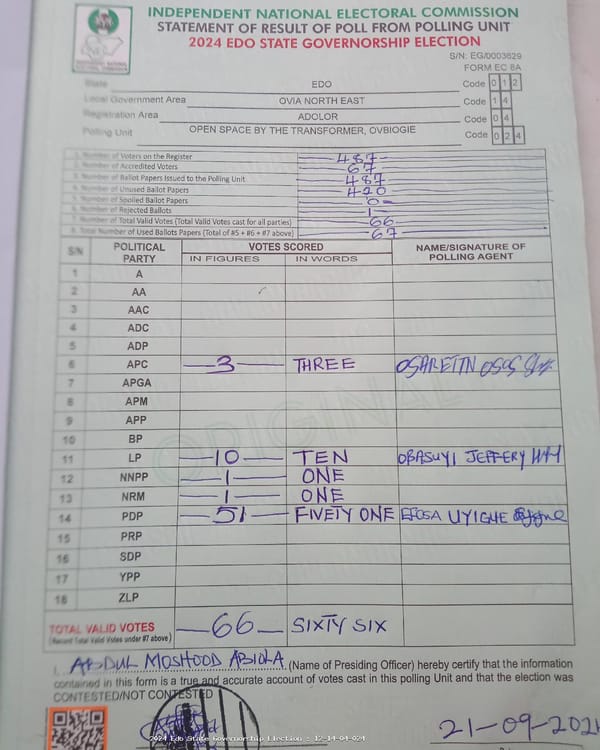 INDEPENDENT NATIONAL ELECTORAL COMMISSION
STATEMENT OF RESULT OF POLL FROM POLLING UNIT
2024 EDO STATE GOVERNORSHIP ELECTION
S/N: EG/0003629
FORM EC 8A
State EDO Code 0 1 2
Local Government Area OVIA NORTH EAST Code 1 4
Registration Area ADOLOR Code 0 4
Polling Unit OPEN SPACE BY THE TRANSFORMER, OVBIOGIE Code 0 2 4
1. Number of Voters on the Register 487
2. Number of Accredited Voters 67
3. Number of Ballot Papers Issued to the Polling Unit 487
4. Number of Unused Ballot Papers 420
5. Number of Spoiled Ballot Papers 0
6. Number of Rejected Ballots 1
7. Number of Total Valid Votes (Total Valid Votes cast for all parties) 66
8. Total Number of Used Ballots Papers (Total of #5 + #6 + #7 above) 67
S/N POLITICAL PARTY VOTES SCORED NAME/SIGNATURE OF POLLING AGENT
IN FIGURES IN WORDS
1 A
2 AA
3 AAC
4 ADC
5 ADP
6 APC 3 THREE
7 APGA
8 APM
9 APP
10 BP
11 LP 10 TEN OBASUYI JEFFERY
12 NNPP 1 ONE
13 NRM 1 ONE
14 PDP 51 FIVETY ONE EFOSA UYIGHE
15 PRP
16 SDP
17 YPP
18 ZLP
ORIGINAL
TOTAL VALID VOTES 66 SIXTY SIX
(Record Total Valid Votes under #7 above)
I, ABDUL MOSHOOD ABIOLA (Name of Presiding Officer) hereby certify that the information
contained in this form is a true and accurate account of votes cast in this polling Unit and that the election was
CONTESTED/NOT CONTESTED
21-09-202
2024 Edo State Governorship Election : 12-14-04-024